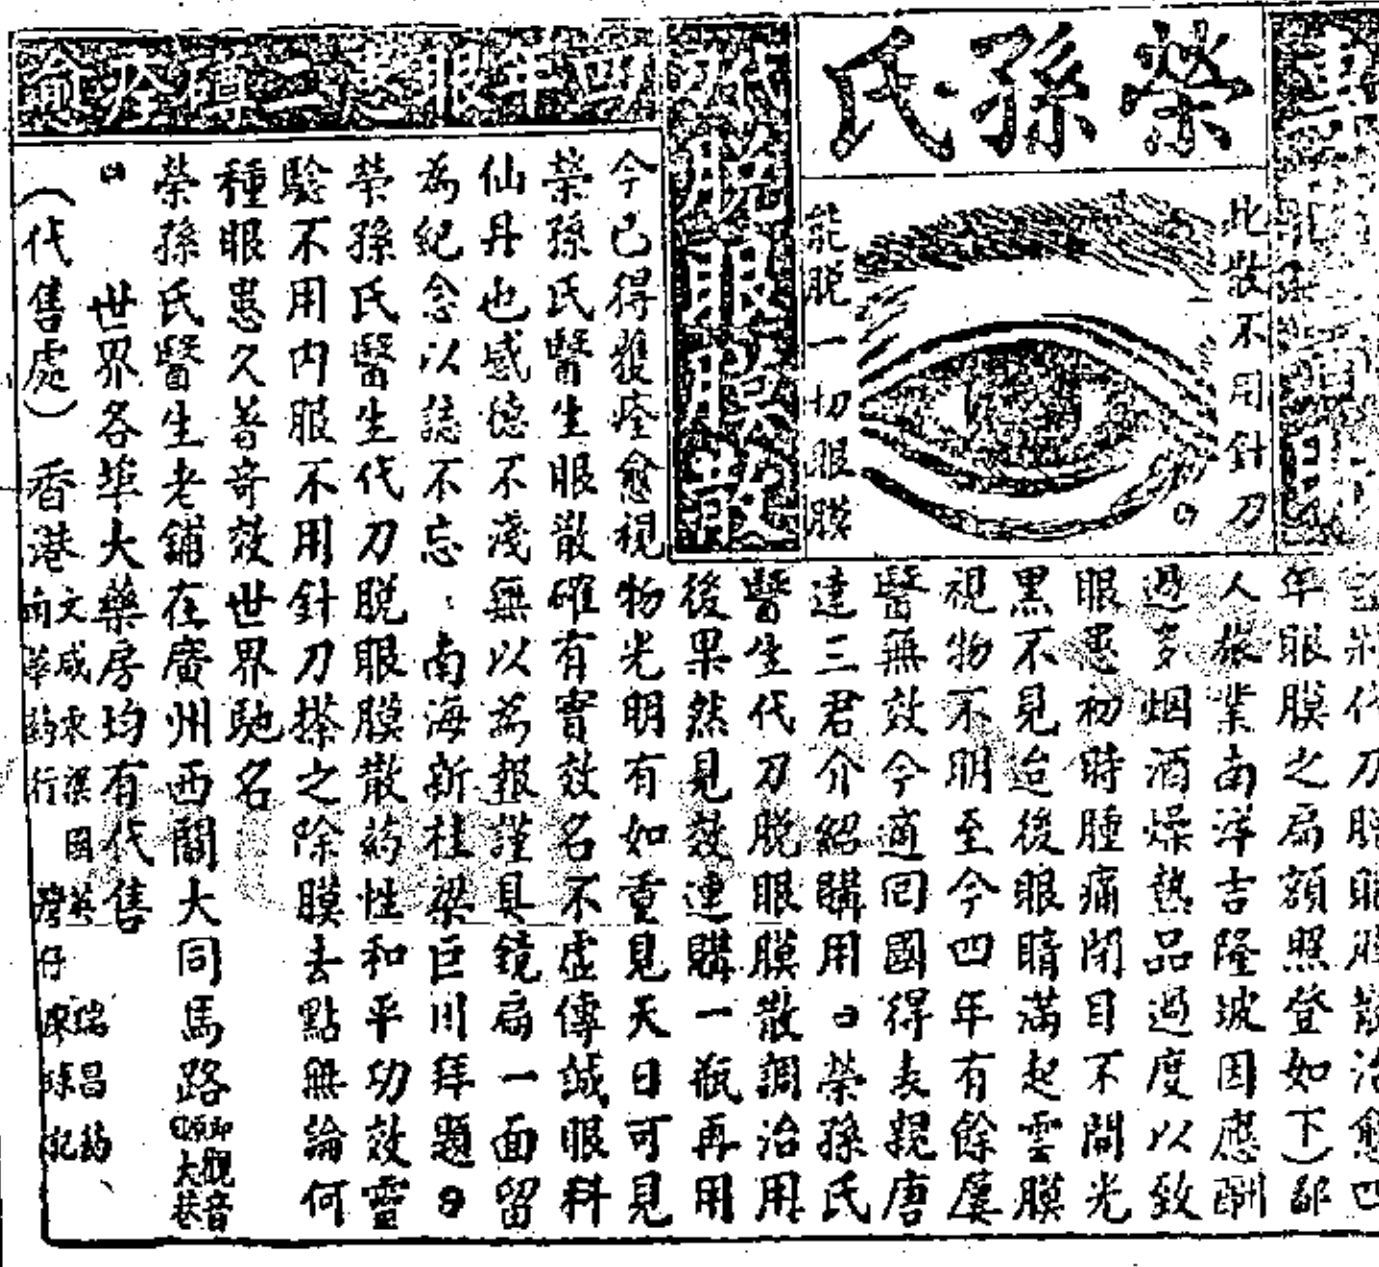 榮孫氏
此散不用針刀
能脫一切眼膜
代刀脫眼膜散
四年眼患二磚痊愈
代刀脫眼膜散治愈四
年眼膜之扁額照登如下)鄙
人旅業南洋吉隆玻因應酬
過多烟酒燥熱品過度以致
眼患初時腫痛閉目不開光
黑不見迨後眼睛滿起雲膜
視物不明至今四年有餘屢
醫無效今適回國得表親唐
達三君介紹購用榮孫氏
醫生代刀脫眼膜散調治用
後果然見效連購一瓶再用
今已得獲痊愈視物光明有如重見天日可見
榮孫氏醫生眼散確有實效名不虛傳誠眼科
仙丹也感德不淺無以為報謹具鏡扁一面留
為紀念以誌不忘 南海新桂梁巨川拜題
榮孫氏醫生代刀脫眼膜散葯性和平功效靈
驗不用內服不用針刀搽之除膜去點無論何
種眼患久著奇效世界馳名
榮孫氏醫生老鋪在廣州西關大同馬路 觀音大巷
世界各埠大藥房均有代售
(代售處) 香港 文咸東 梁國英 瑞昌葯
南華葯行 灣仔 陳孫記